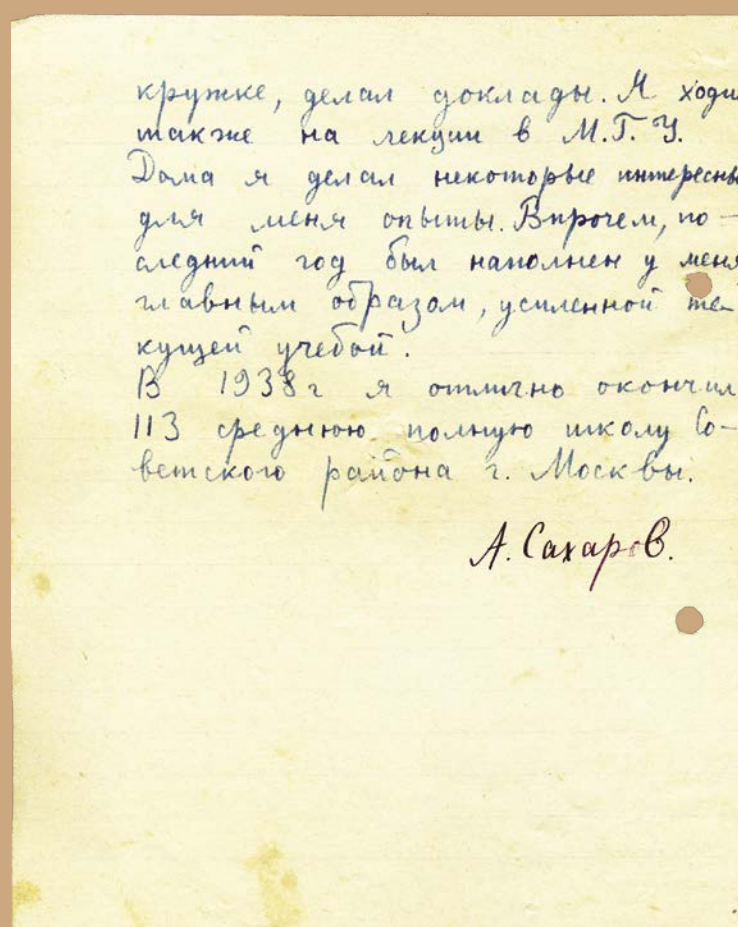 кружке, делал доклады. Я ходил
также на лекции в М.Г.У.
Дома я делал некоторые интересны
для меня опыты. Впрочем, по-
следний год был наполнен у меня
главным образом, усиленной те-
кущей учебой.
В 1938г я отлично окончил
113 среднюю полную школу Со-
ветского района г. Москвы.
А. Сахаров.